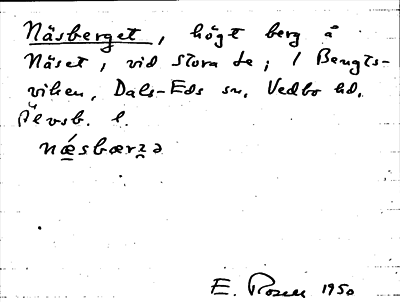 Näsberget, högt berg å
Näset, vid Stora Le, i Bengts-
viken, Dals-Eds sn, Vedbo hd,
Älvsb. l.
næ̀sbærʒə
E. Rosell 1950